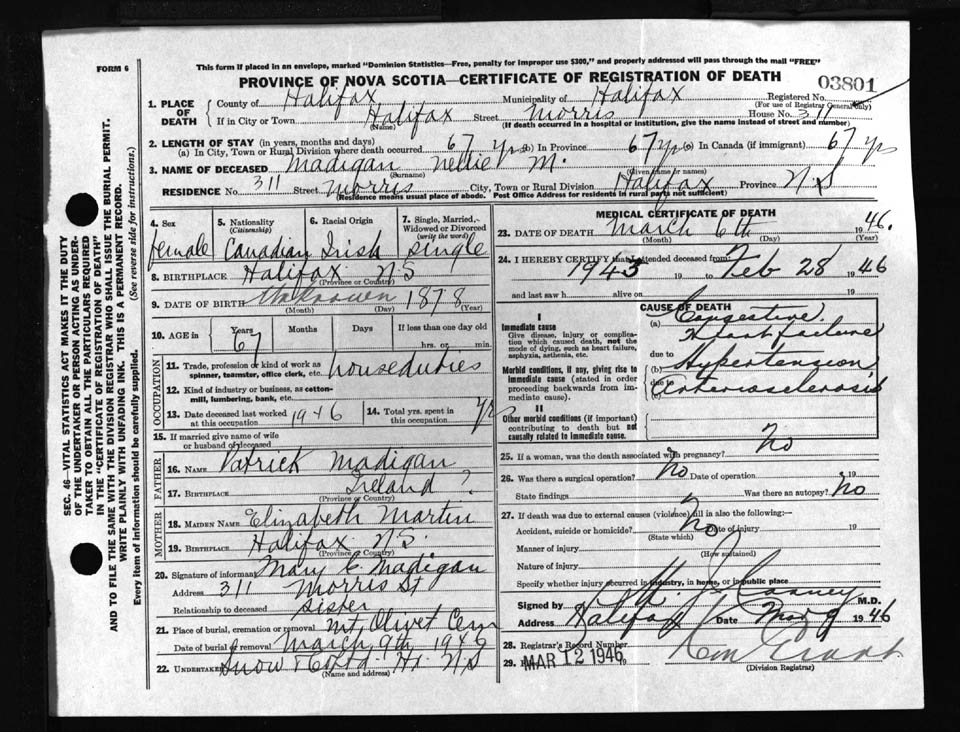 This form if placed in an envelope, marked "Dominion Statistics—Free, penalty for improper use $300," and properly addressed will pass through the mail "FREE"
FORM 6
PROVINCE OF NOVA SCOTIA—CERTIFICATE OF REGISTRATION OF DEATH
03801
1. PLACE OF DEATH County of Halifax Municipality of Halifax Registered No. (For use of Registrar General only)
If in City or Town Halifax (Name) Street Morris House No. 311
(If death occurred in a hospital or institution, give the name instead of street and number)
2. LENGTH OF STAY (in years, months and days)
(a) In City, Town or Rural Division where death occurred 67 yrs (b) In Province 67 yrs (c) In Canada (if immigrant) 67 yrs
3. NAME OF DECEASED Madigan (Surname) Nellie M. (Given name or names)
RESIDENCE No. 311 Street Morris City, Town or Rural Division Halifax Province N.S
(Residence means usual place of abode. Post Office Address for residents in rural parts not sufficient)
4. Sex female
5. Nationality (Citizenship) Canadian
6. Racial Origin Irish
7. Single, Married, Widowed or Divorced (write the word) single
8. BIRTHPLACE Halifax N.S (Province or Country)
9. DATE OF BIRTH Unknown 1878 (Month) (Day) (Year)
10. AGE in Years 67 Months Days If less than one day old hrs. or min.
OCCUPATION
11. Trade, profession or kind of work as spinner, teamster, office clerk, etc. houseduties
12. Kind of industry or business, as cotton-mill, lumbering, bank, etc.
13. Date deceased last worked at this occupation 1946
14. Total yrs. spent in this occupation yrs
15. If married give name of wife or husband of deceased
FATHER
16. NAME Patrick Madigan
17. BIRTHPLACE Ireland ? (Province or Country)
MOTHER
18. MAIDEN NAME Elizabeth Martin
19. BIRTHPLACE Halifax N.S. (Province or Country)
20. Signature of informant Mary C. Madigan
Address 311 Morris St
Relationship to deceased sister
21. Place of burial, cremation or removal Mt Olivet Cem
Date of burial or removal March 9th, 1946
22. Undertaker Snow & Co Ltd. Hx N.S
(Name and address)
MEDICAL CERTIFICATE OF DEATH
23. DATE OF DEATH March 6th 1946. (Month) (Day) (Year)
24. I HEREBY CERTIFY that I attended deceased from:
1945 19 to Feb 28 1946
and last saw h alive on 19
CAUSE OF DEATH
I
Immediate cause
Give disease, injury or complication which caused death, not the mode of dying, such as heart failure, asphyxia, asthenia, etc.
(a) Congestive Heart failure
due to
Morbid conditions, if any, giving rise to immediate cause (stated in order proceeding backwards from immediate cause)
(b) Hypertension
due to
Arteriosclerosis
II
Other morbid conditions (if important) contributing to death but not causally related to immediate cause.
25. If a woman, was the death associated with pregnancy? No
26. Was there a surgical operation? No Date of operation 19
State findings Was there an autopsy? No
27. If death was due to external causes (violence) fill in also the following:—
Accident, suicide or homicide? No Date of injury 19
(State which)
Manner of injury (How sustained)
Nature of injury
Specify whether injury occurred in industry, in home, or in public place
Signed by M.D.
Address Halifax Date Mar 9 1946
28. Registrar's Record Number
29. MAR 12 1946
(Division Registrar)
SEC. 46—VITAL STATISTICS ACT MAKES IT THE DUTY
OF THE UNDERTAKER OR PERSON ACTING AS UNDER-
TAKER TO OBTAIN ALL THE PARTICULARS REQUIRED
IN THE "CERTIFICATE OF REGISTRATION OF DEATH"
AND TO FILE THE SAME WITH THE DIVISION REGISTRAR WHO SHALL ISSUE THE BURIAL PERMIT.
WRITE PLAINLY WITH UNFADING INK. THIS IS A PERMANENT RECORD.
Every item of information should be carefully supplied. (See reverse side for instructions.)